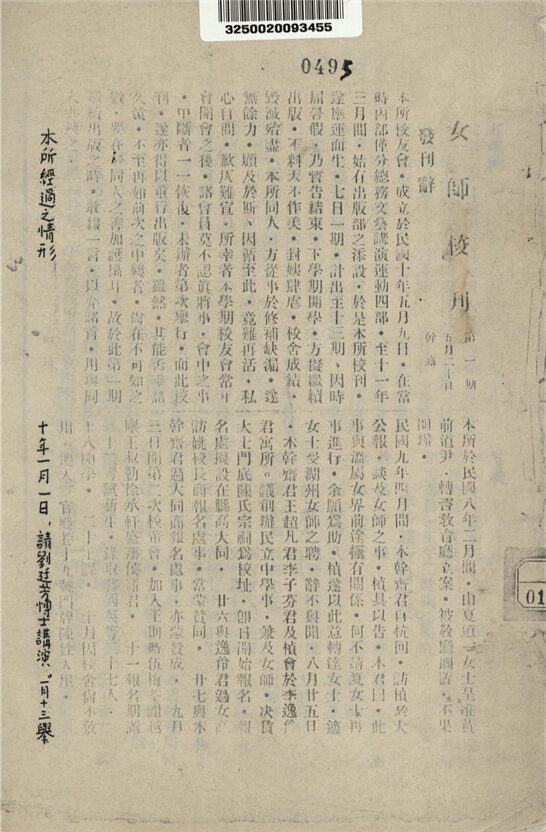 3250020093455
0495
女師校刊
第一期
五月二十日
發刊辭
幹齋
本所校友會・成立於民國十年五月九日・在當
時內部僅分總務交藝講演運動四部・至十一年
三月間・始有出版部之添設・於是本所校刊・
遂應運而生・七日一期・計出至十三期・因時
屆暑假・乃暫告結束・下學期開學・方擬繼續
出版・不料天不作美・封姨肆虐・校舍成績・
毀滅殆盡・本所同人・方從事於修補缺漏・遂
無餘力・顧及於斯・因循至此・竟難再活・私
心自問・歉仄難宣・所幸者本學期校友會當
會開會之後・諸會員莫不認眞將事・會中之事
・中斷者一一恢復・未辦者第次舉行・而此校
刊・遂亦得以重行出版矣・雖然・其能否
久遠・不至再如前次之中輟者・尚在不可知之
數・要在同人之善加護持耳・故於此第一期
出版之時・敢綴一言・以介諸首・用與同
本所經過之情形
本所於民國八年二月間・由夏道二女士呈准
前道尹・轉咨敎育廳立案・被敎廳調譯・不果
開辦・
民國九年四月間・木幹齋君自杭回・訪植於大
公報・談及女師之事・植具以告・木君曰・此
事與溫屬女界前途極有關係・何不請夏女士再
事進行・余願爲助・植遂以此意轉達女士・適
女士受湖州女師之聘・辭不與聞・八月廿五日
・木幹齋君王超凡君李子芬君及植會於李逸伶
君寓所。議創辦民立中學事・兼及女師・決貰
大士門底陳氏宗祠爲校址・卽日開始報名・報
名處擬設在縣高大同・廿六與逸伶君過女高
訪姚校長商報名處事・當蒙贊同・廿七與木
幹齋君過大同商報名處事・亦蒙贊成・九月
三日開第二次校董會・加入王則時伍梅
十一報名期滿
十年一月一日，請劉廷芳博士講演。一月十三舉
01